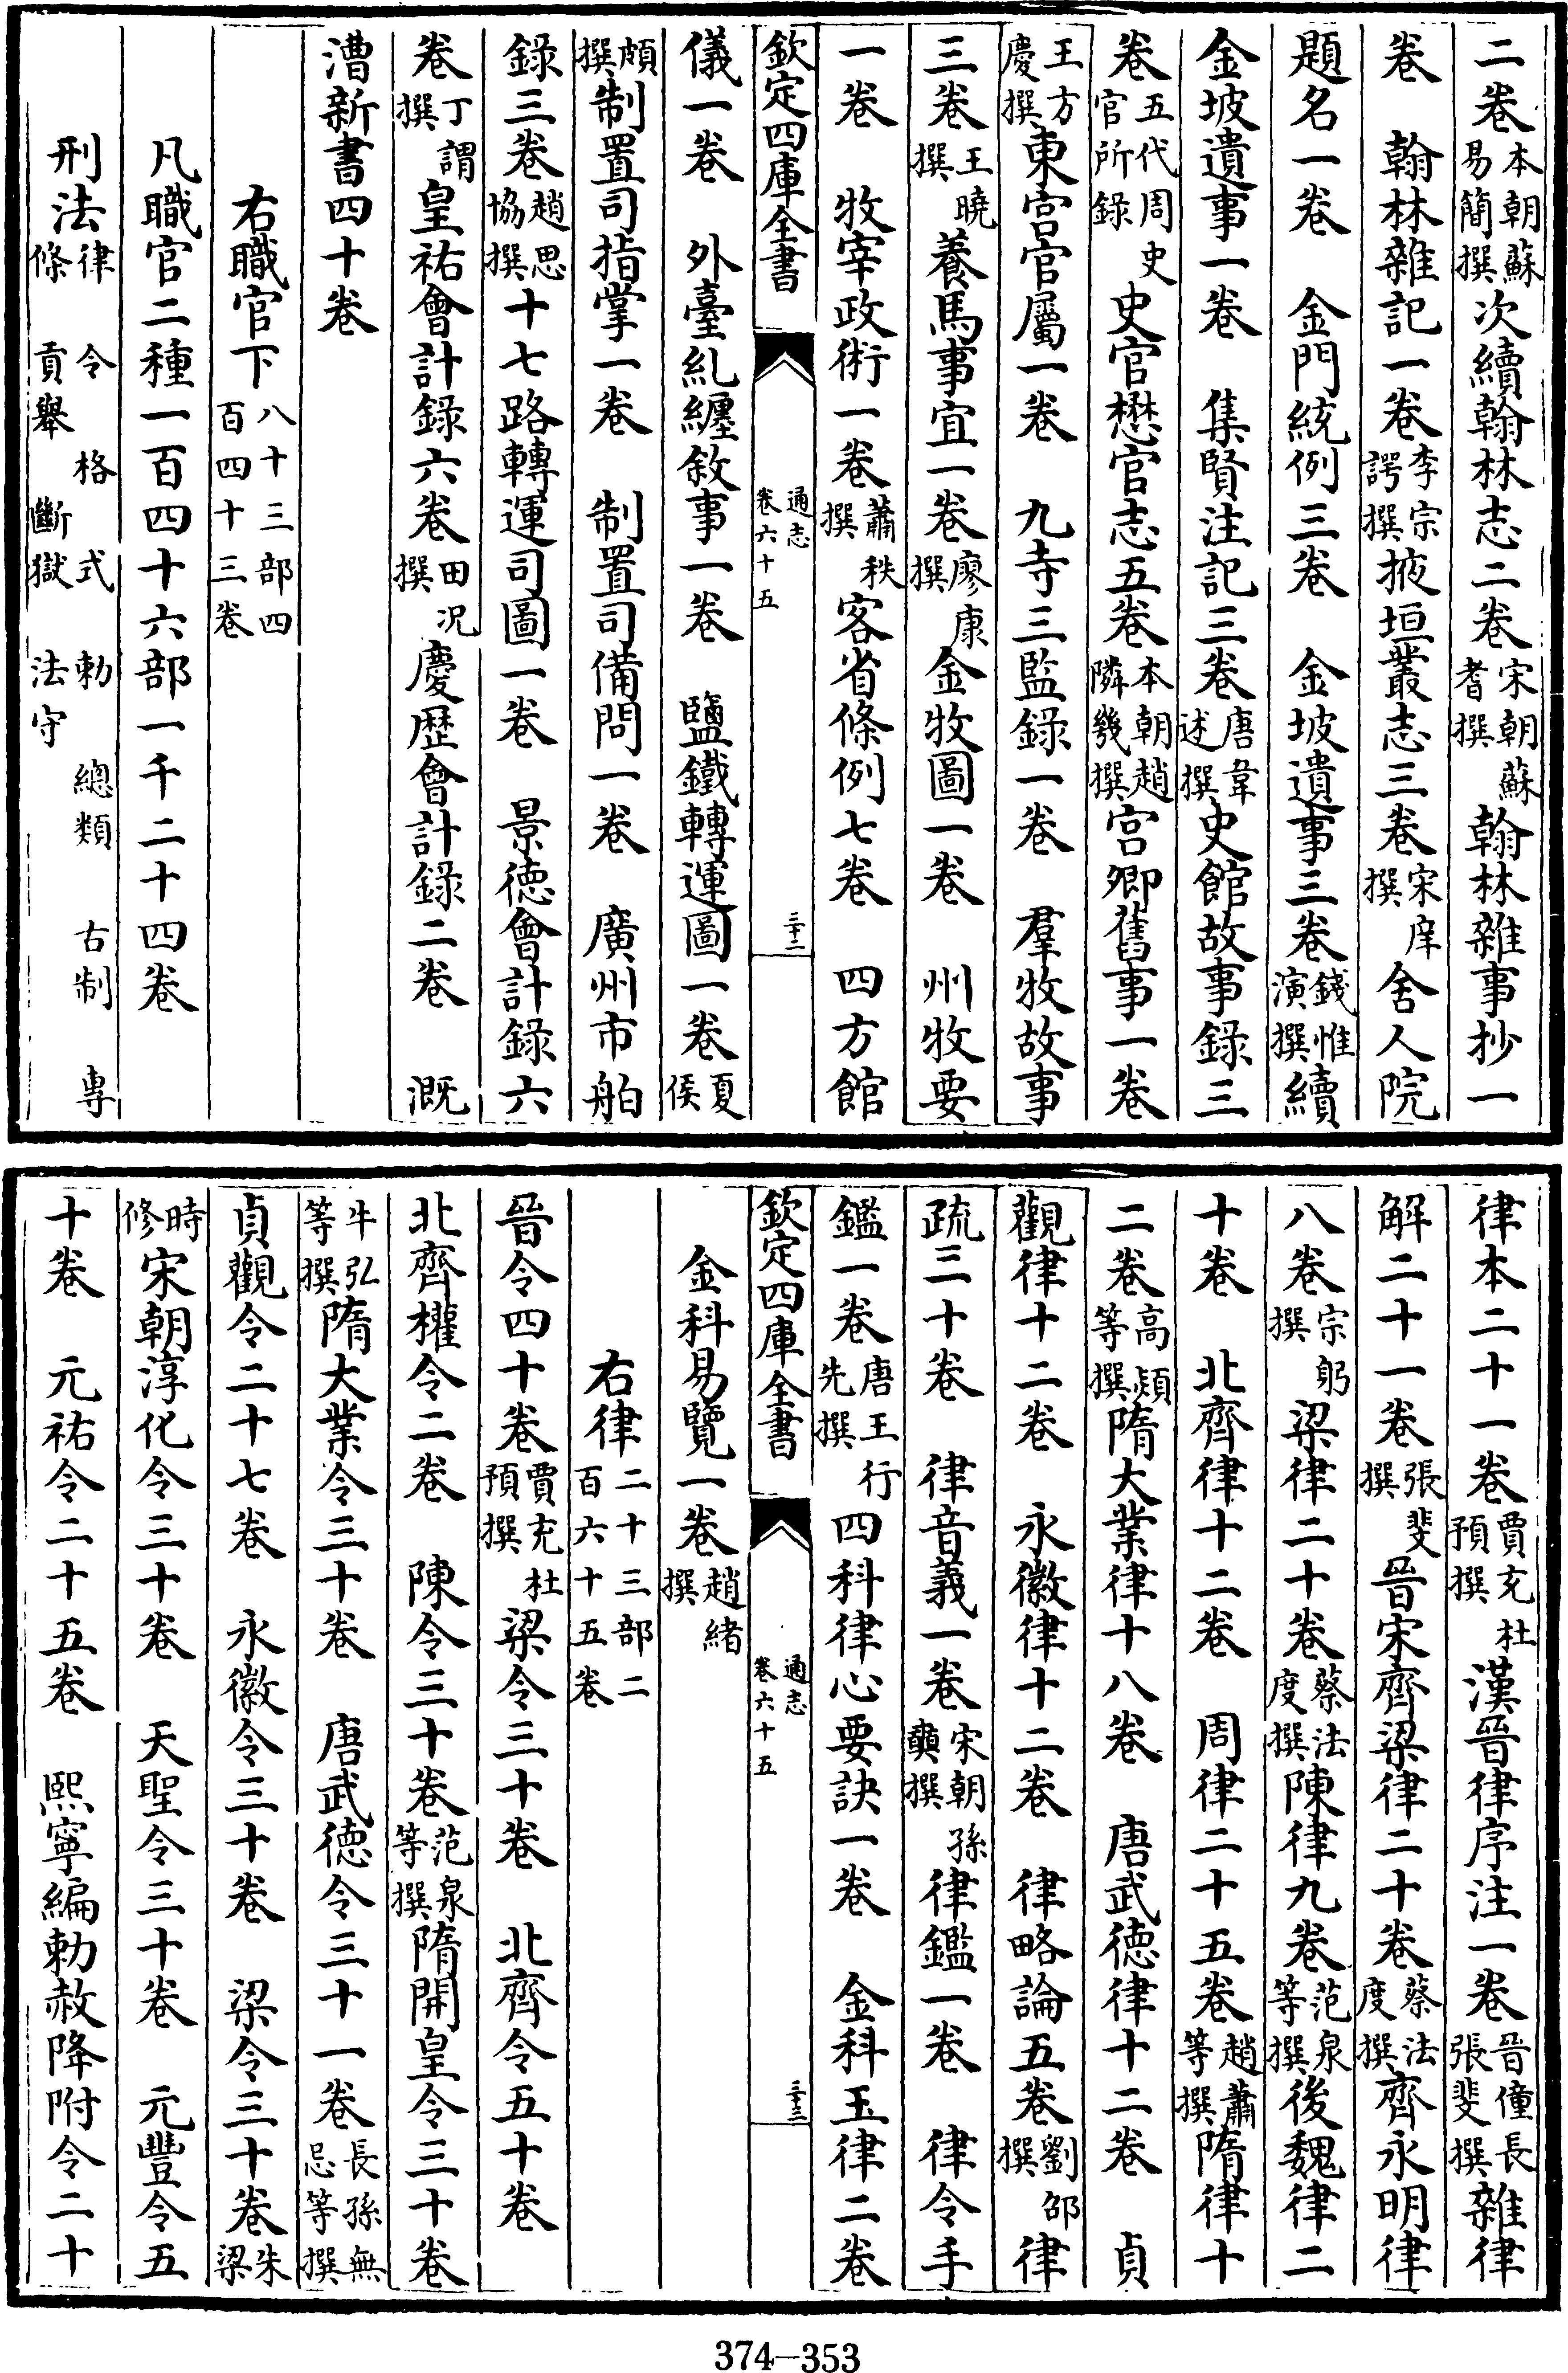 二卷本朝蘇易簡撰次續翰林志二卷宋朝蘇耆撰翰林雜事抄一
卷　翰林雜記一卷李宗諤撰掖垣叢志三卷宋庠撰舍人院
題名一卷　金門統例三卷　金坡遺事三卷錢惟演撰續
金坡遺事一卷　集賢注記三卷唐韋述撰史館故事錄三
卷五代周史官所錄史官懋官志五卷本朝趙隣幾撰宮卿舊事一卷
王方慶撰東宮官屬一卷　九寺三監錄一卷　羣牧故事
三卷王曉撰養馬事宜一卷廖康撰金牧圖一卷　州牧要
一卷　牧宰政術一卷蕭秩撰客省條例七卷　四方館
欽定四庫全書　通志卷六十五　三十二
儀一卷　外臺糺纏敘事一卷　鹽鐵轉運圖一卷夏侯
頗撰制置司指掌一卷　制置司備問一卷　廣州市舶
錄三卷趙思協撰十七路轉運司圖一卷　景德會計錄六
卷丁謂撰皇祐會計錄六卷田况撰慶歴會計錄二卷　溉
漕新書四十卷
右職官下八十三部四百四十三卷
凡職官二種一百四十六部一千二十四卷
刑法律　令　格　式　勅　總類　古制　專條　貢舉　斷獄　法守
律本二十一卷賈充杜預撰漢晉律序注一卷晉僮長張斐撰雜律
解二十一卷張斐撰晉宋齊梁律二十卷蔡法度撰齊永明律
八卷宗躬撰梁律二十卷蔡法度撰陳律九卷范泉等撰後魏律二
十卷　北齊律十二卷　周律二十五卷趙蕭等撰隋律十
二卷高熲等撰隋大業律十八卷　唐武德律十二卷　貞
觀律十二卷　永徽律十二卷　律略論五卷劉邵撰律
疏三十卷　律音義一卷宋朝孫奭撰律鑑一卷　律令手
鑑一卷唐王行先撰四科律心要訣一卷　金科玉律二卷
欽定四庫全書　通志卷六十五　三十三
金科易覽一卷趙緒撰
右律二十三部二百六十五卷
晉令四十卷賈充杜預撰梁令三十卷　北齊令五十卷
北齊權令二卷　陳令三十卷范泉等撰隋開皇令三十卷
牛弘等撰隋大業令三十卷　唐武德令三十一卷長孫無忌等撰
貞觀令二十七卷　永徽令三十卷　梁令三十卷朱梁
時修宋朝淳化令三十卷　天聖令三十卷　元豐令五
十卷　元祐令二十五卷　熙寧編勅赦降附令二十
374-353